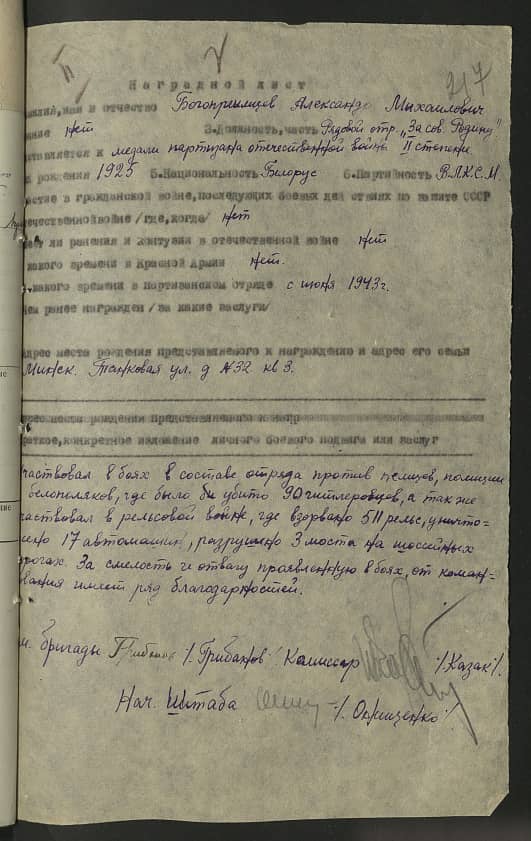 II
217
Наградной лист
амилия, имя и отчество Богопрыимцев Александр Михайлович
ание нет 3.Должность,часть Рядовой отр. "За сов. Родину"
тавляется к медали партизана отечественной войны II степени
рождения 1925 5.Национальность Белорус 6.Партийность В.Л.К.С.М.
астие в гражданской войне,последующих боевых дей ствиях по защите СССР
течественной войне /где,когда/ нет
ет ли ранения и контузии в отечественной войне нет
какого времени в Красной Армии нет.
какого времени в партизанском отряде с июня 1943г.
ем ранее награжден /за какие заслуги/
Адрес места рождения представляемого к награждению и адрес его семьи
Минск. Танковая ул. д №32 кв 3.
дрес места рождения представляемого к награр
раткое,конкретное изложение личного боевого подвига или заслуг
частвовал в боях в составе отряда против немцев, полиции
белополяков, где было бы убито 90 гитлеровцев, а так же
частвовал в рельсовой войне, где взорвано 511 рельс, уничто=
ено 17 автомашин, разрушено 3 моста на шоссейных
рогах. За смелость и отвагу проявленную в боях, от коман=
вания имеет ряд благодарностей.
м. бригады /. Грибанов / Комиссар /. Казак /.
Нач. Штаба /. Онищенко /